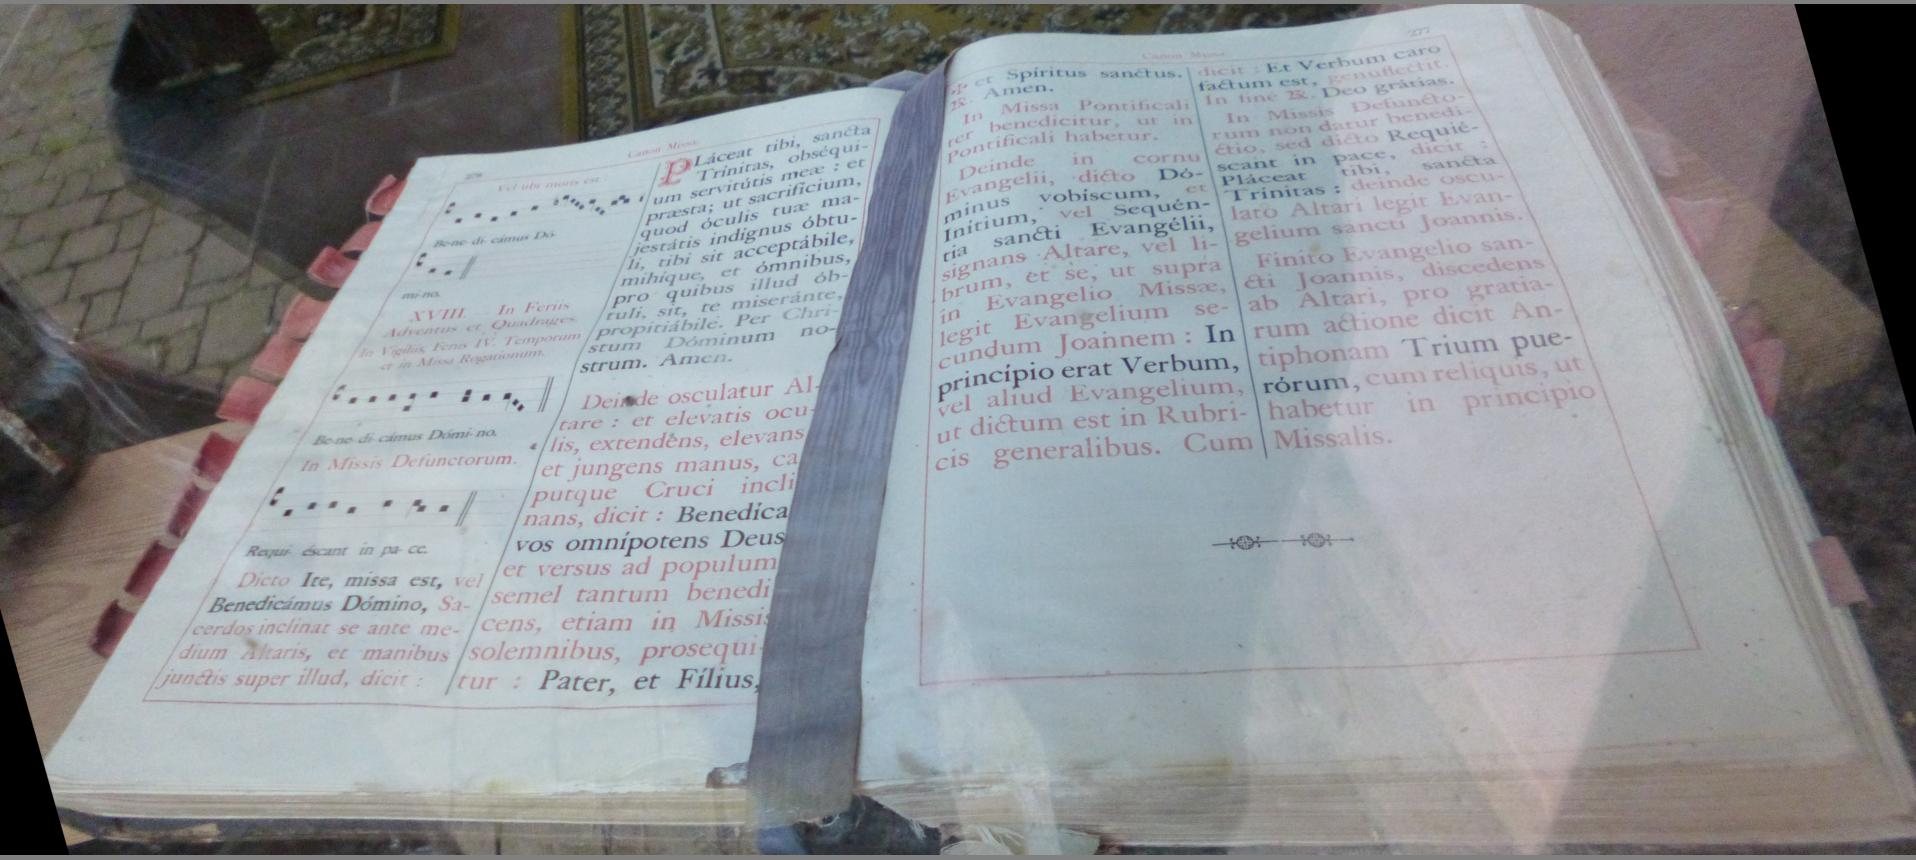 276
Canon Missæ
Vel ubi moris est :
Be-ne-di-cámus Dó-
mi-no.
XVIII. In Feriis
Adventus et Quadrages.
In Vigiliis, Feriis IV. Temporum
et in Missa Rogationum.
Be-ne-di-cámus Dómi-no.
In Missis Defunctorum.
Requi-éscant in pa-ce.
Dicto Ite, missa est, vel
Benedicámus Dómino, Sa-
cerdos inclinat se ante me-
dium Altaris, et manibus
junctis super illud, dicit :
PLáceat tibi, sancta
Trínitas, obséqui-
um servitútis meæ : et
præsta; ut sacrifícium,
quod óculis tuæ ma-
jestátis indígnus óbtu-
li, tibi sit acceptábile,
mihíque, et ómnibus,
pro quibus illud ób-
tuli, sit, te miseránte,
propitiábile. Per Chri-
stum Dóminum no-
strum. Amen.
Deinde osculatur Al-
tare : et elevatis ocu-
lis, extendens, elevans
et jungens manus, ca
putque Cruci incli
nans, dicit : Benedíca
vos omnípotens Deus
et versus ad populum
semel tantum benedi
cens, etiam in Missis
solemnibus, prosequi-
tur : Pater, et Fílius,
Canon Missæ
277
✠ et Spíritus sanctus.
℟. Amen.
In Missa Pontificali
ter benedicitur, ut in
Pontificali habetur.
Deinde in cornu
Evangelii, dicto Dó-
minus vobíscum, et
Inítium, vel Sequén-
tia sancti Evangélii,
signans Altare, vel li-
brum, et se, ut supra
in Evangelio Missæ,
legit Evangelium se-
cundum Joannem : In
princípio erat Verbum,
vel aliud Evangelium,
ut dictum est in Rubri-
cis generalibus. Cum
dicit : Et Verbum caro
factum est, genuflectit.
In fine ℟. Deo grátias.
In Missis Defuncto-
rum non datur benedi-
ctio, sed dicto Requié-
scant in pace, dicit :
Pláceat tibi, sancta
Trínitas : deinde oscu-
lato Altari legit Evan-
gelium sancti Joannis.
Finito Evangelio san-
cti Joannis, discedens
ab Altari, pro gratia-
rum actione dicit An-
tiphonam Trium pue-
rórum, cum reliquis, ut
habetur in principio
Missalis.